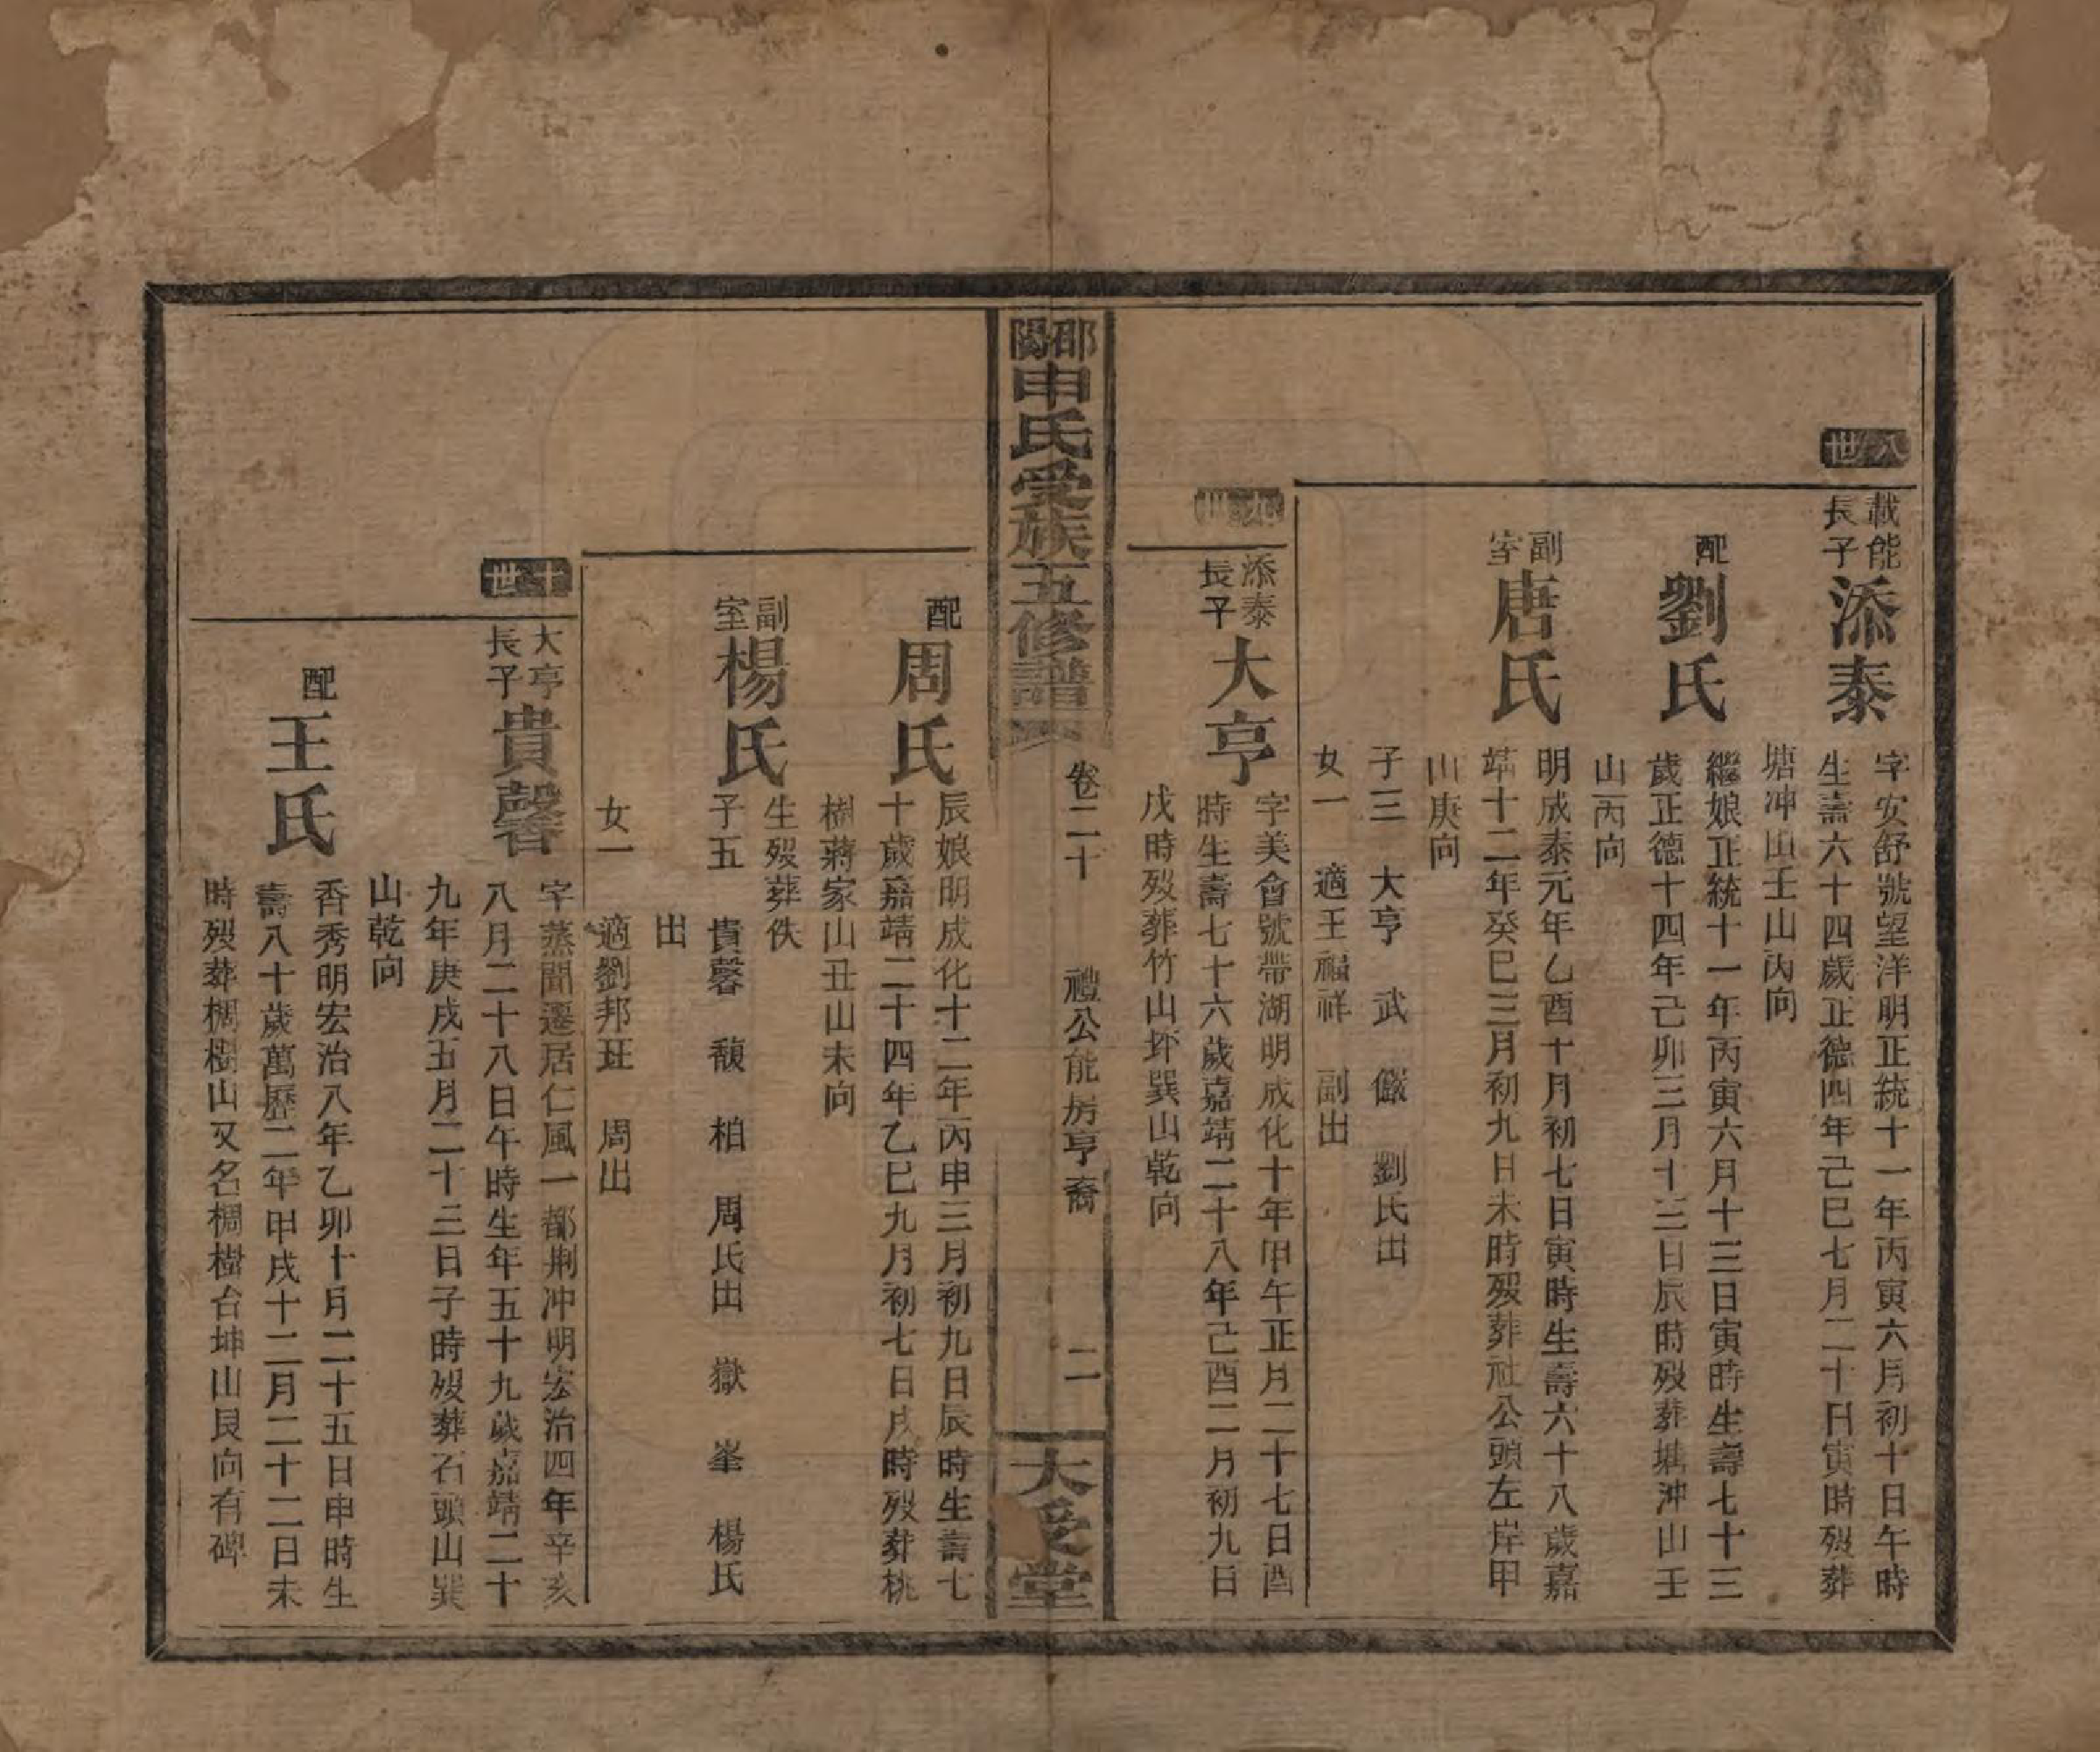 八世
載能長子
添泰
字安舒號望洋明正統十一年丙寅六月初十日午時
生壽六十四歲正德四年己巳七月二十日寅時歿葬
塘冲山壬山丙向
配
劉氏
繼娘正統十一年丙寅六月十三日寅時生壽七十三
歲正德十四年己卯三月十三日辰時歿葬塘冲山壬
山丙向
副室
唐氏
明成泰元年乙酉十月初七日寅時生壽六十八歲嘉
靖十二年癸巳三月初九日未時歿葬社公頭左岸甲
山庚向
子三 大亨 武 儼 劉氏出
女一 適王福祥 副出
九世
添泰長子
大亨
字美會號帶湖明成化十年甲午正月二十七日酉
時生壽七十六歲嘉靖二十八年己酉二月初九日
戌時歿葬竹山坏巽山乾向
邵陽申氏受族五修譜
卷二十
禮公能房亨裔
二
大受堂
配
周氏
辰娘明成化十二年丙申三月初九日辰時生壽七
十歲嘉靖二十四年乙巳九月初七日戌時歿葬桃
樹蔣家山丑山未向
副室
楊氏
生歿葬佚
子五 貴馨 馥 柏 周氏出 嶽 峯 楊氏
出
女一 適劉邦珏 周出
十世
大亨長子
貴馨
字蒸聞遷居仁風一都荆冲明宏治四年辛亥
八月二十八日午時生年五十九歲嘉靖二十
九年庚戌五月二十三日子時歿葬石頭山巽
山乾向
配
王氏
香秀明宏治八年乙卯十月二十五日申時生
壽八十歲萬歷二年甲戌十二月二十二日未
時歿葬椆樹山又名椆樹台坤山艮向有碑